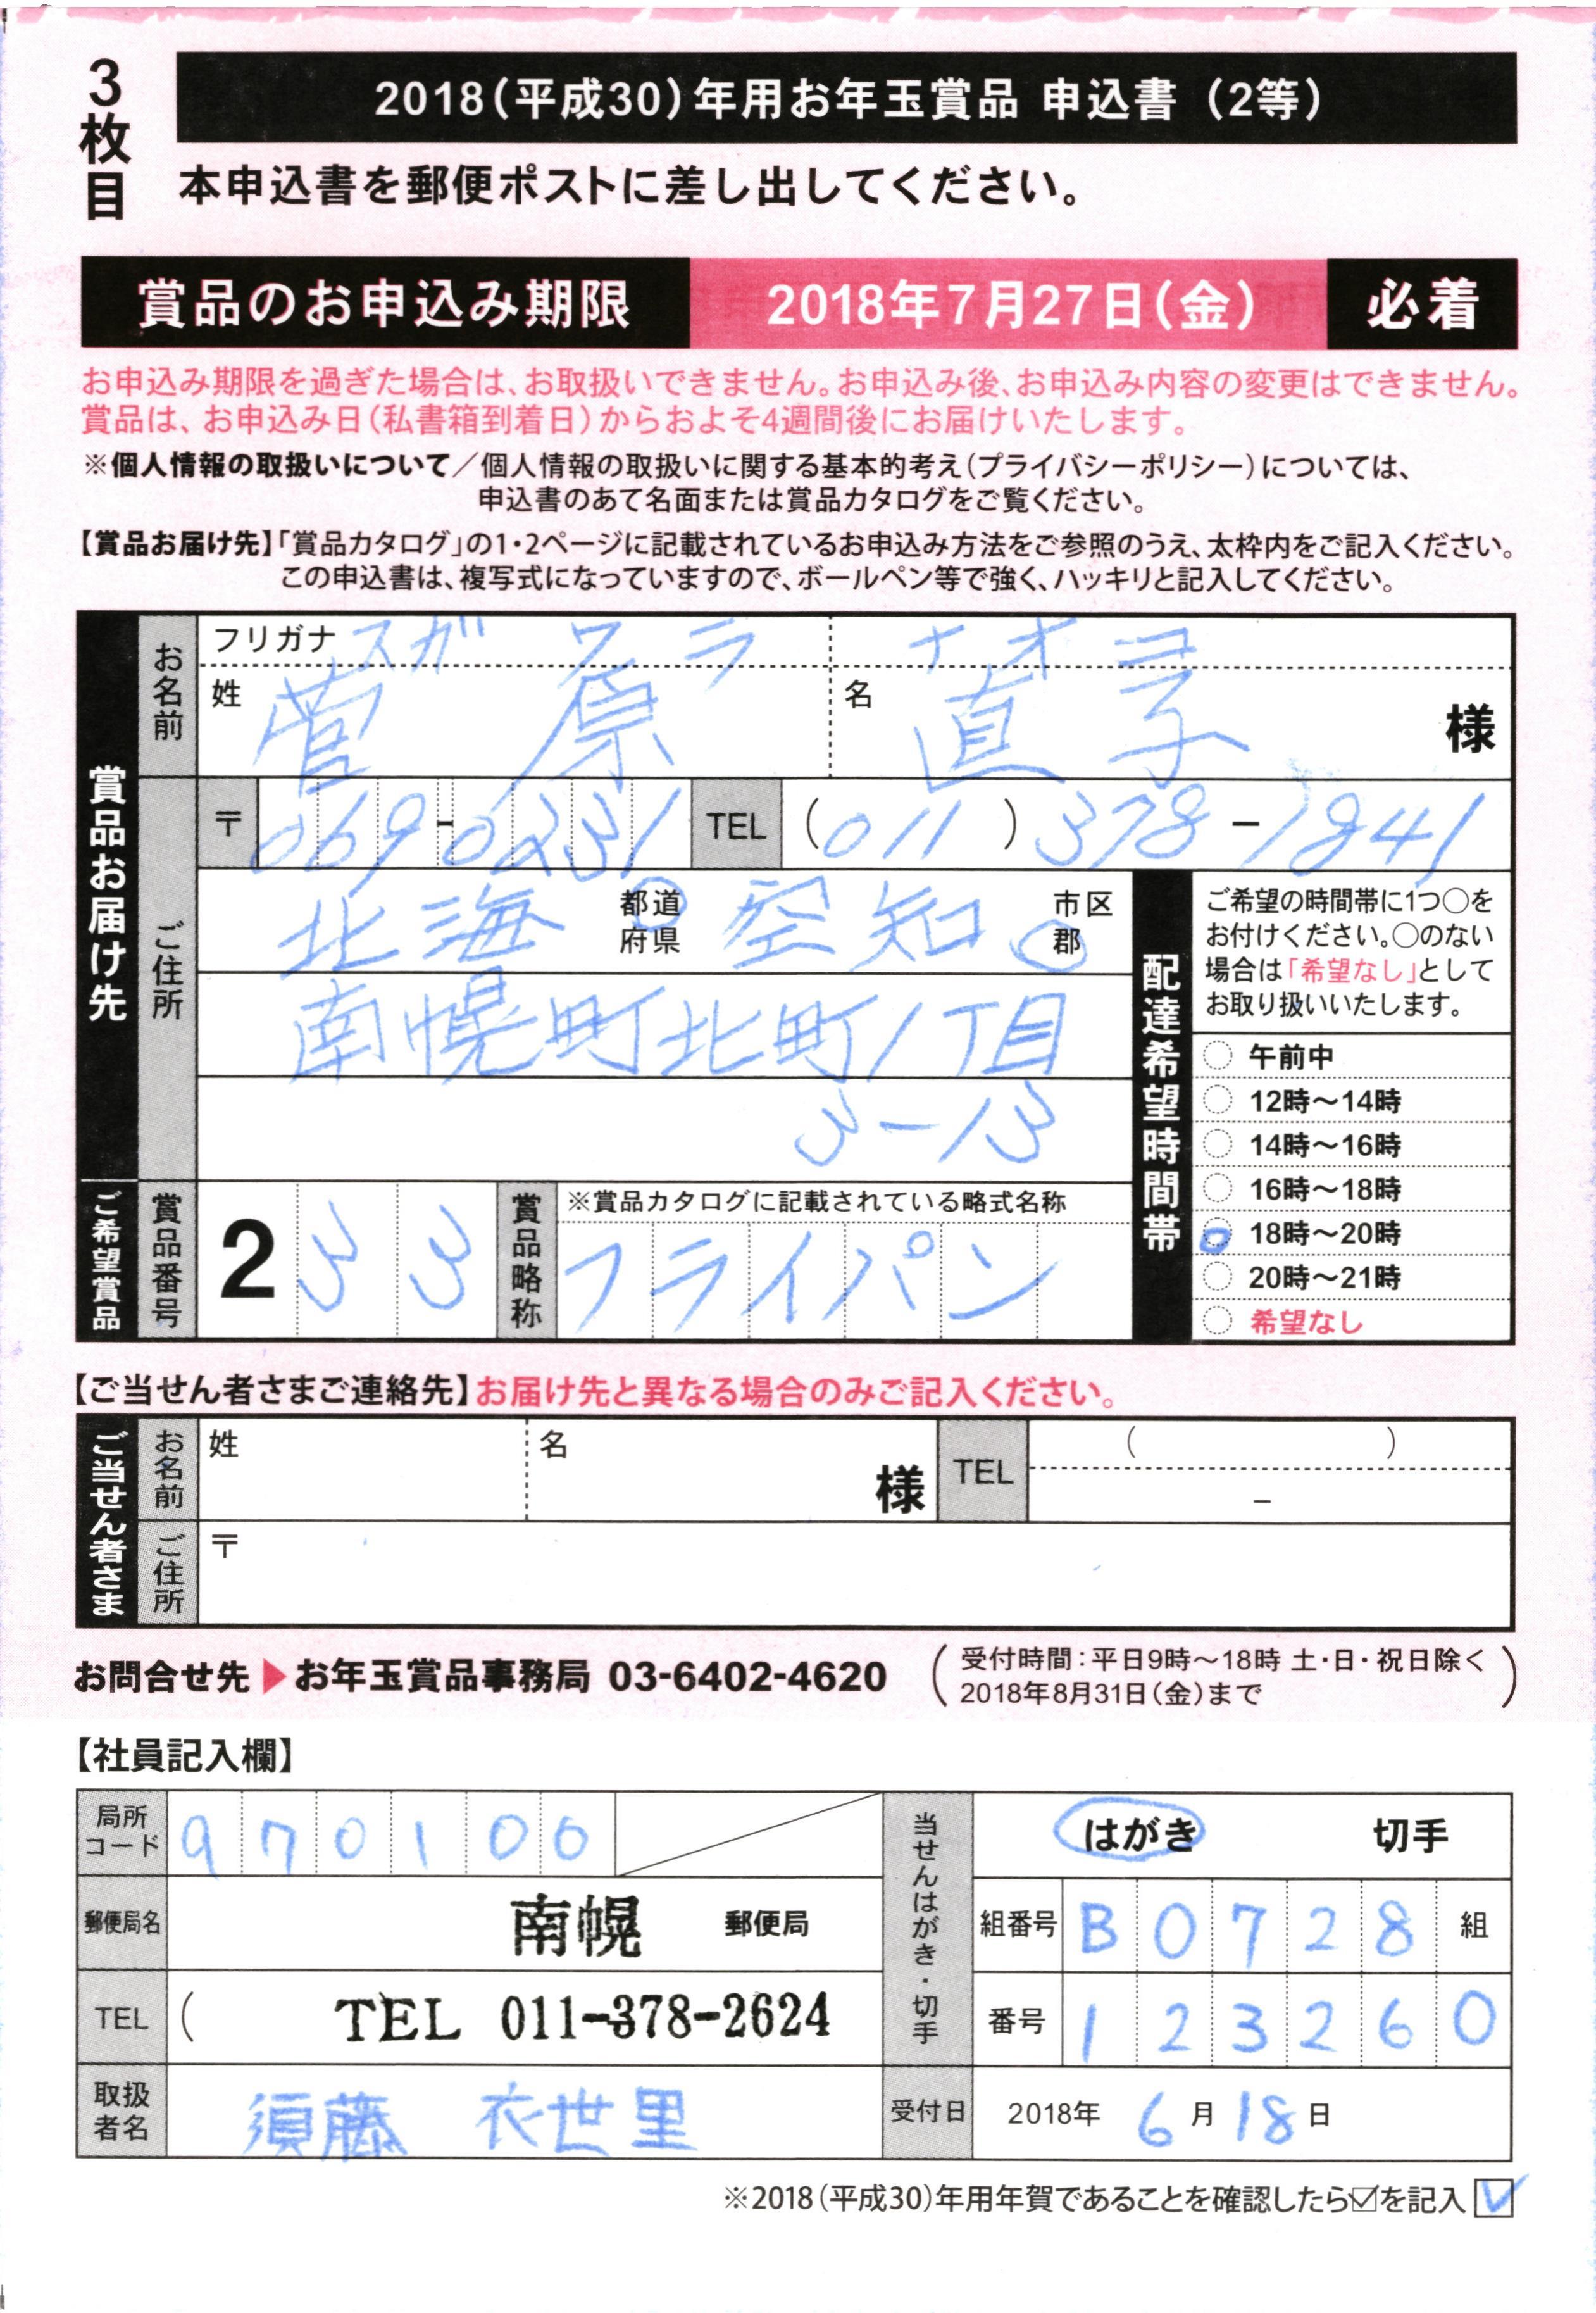 3枚目
2018(平成30)年用お年玉賞品 申込書(2等)
本申込書を郵便ポストに差し出してください。
賞品のお申込み期限 2018年7月27日(金) 必着
お申込み期限を過ぎた場合は、お取扱いできません。お申込み後、お申込み内容の変更はできません。
賞品は、お申込み日(私書箱到着日)からおよそ4週間後にお届けいたします。
※個人情報の取扱いについて/個人情報の取扱いに関する基本的考え(プライバシーポリシー)については、
申込書のあて名面または賞品カタログをご覧ください。
【賞品お届け先】「賞品カタログ」の1・2ページに記載されているお申込み方法をご参照のうえ、太枠内をご記入ください。
この申込書は、複写式になっていますので、ボールペン等で強く、ハッキリと記入してください。
賞品お届け先
お名前
フリガナ スガ ワラ ナオコ
姓 菅原 名 直子 様
ご住所
〒 069-0231 TEL (011) 378-1841
北海 都道府県 空知 市区郡
南幌町北町1丁目
3-13
配達希望時間帯
ご希望の時間帯に1つ○を
お付けください。○のない
場合は「希望なし」として
お取り扱いいたします。
午前中
12時~14時
14時~16時
16時~18時
18時~20時
20時~21時
希望なし
ご希望賞品
賞品番号 2 3 3 賞品略称 ※賞品カタログに記載されている略式名称
フライパン
【ご当せん者さまご連絡先】お届け先と異なる場合のみご記入ください。
ご当せん者さま
お名前 姓 名 様 TEL ( ) -
ご住所 〒
お問合せ先▶お年玉賞品事務局 03-6402-4620 (受付時間:平日9時~18時 土・日・祝日除く
2018年8月31日(金)まで)
【社員記入欄】
局所コード 970100
郵便局名 南幌 郵便局
TEL ( TEL 011-378-2624
取扱者名 須藤 衣世里
当せんはがき・切手
はがき 切手
組番号 B0728 組
番号 123260
受付日 2018年 6月18日
※2018(平成30)年用年賀であることを確認したら☑を記入 ☑